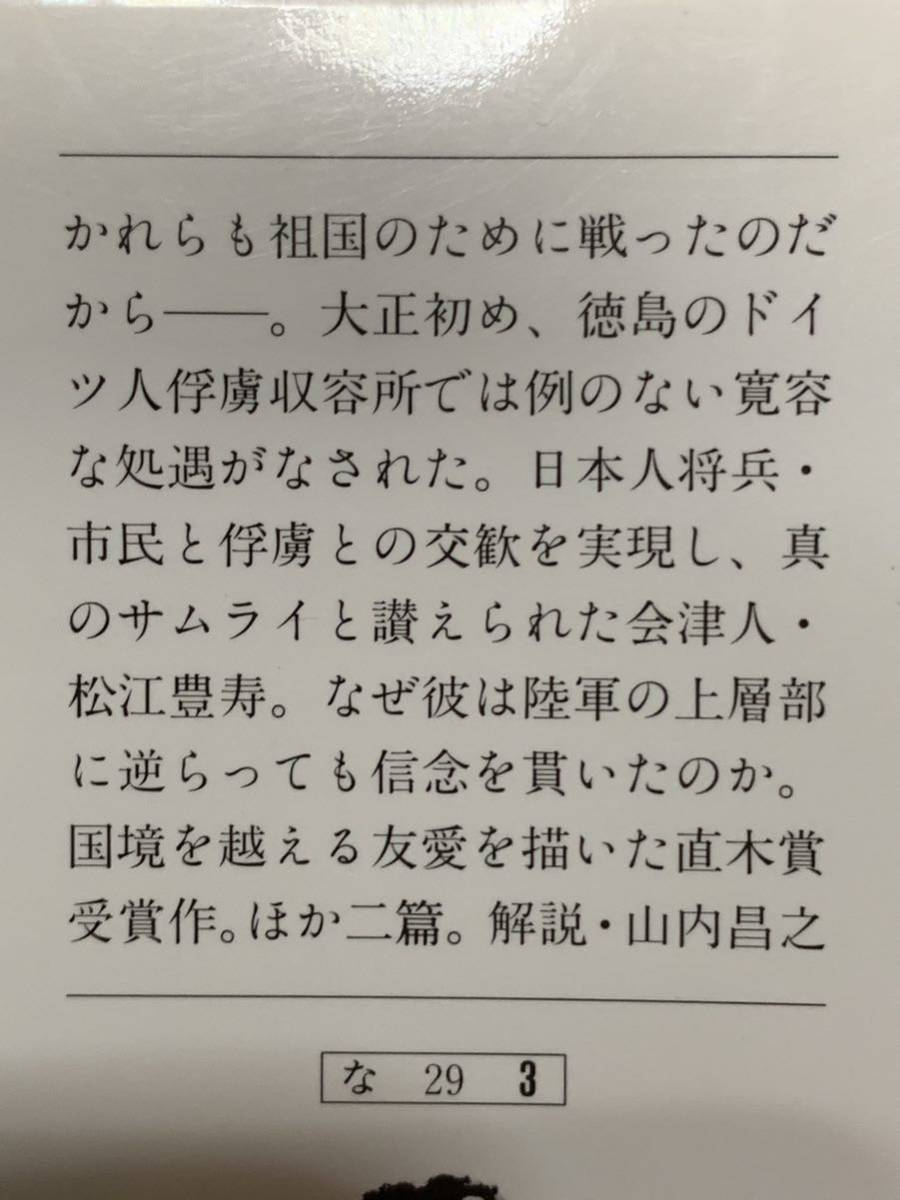 かれらも祖国のために戦ったのだ
から――。大正初め、徳島のドイ
ツ人俘虜収容所では例のない寛容
な処遇がなされた。日本人将兵・
市民と俘虜との交歓を実現し、真
のサムライと讃えられた会津人・
松江豊寿。なぜ彼は陸軍の上層部
に逆らっても信念を貫いたのか。
国境を越える友愛を描いた直木賞
受賞作。ほか二篇。解説・山内昌之
な 29 3